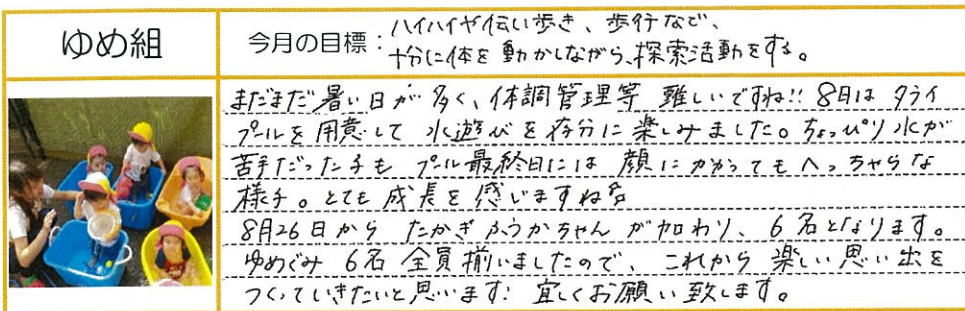 ゆめ組
今月の目標：ハイハイや伝い歩き、歩行など、
十分に体を動かしながら、探索活動をする。
まだまだ暑い日が多く、体調管理等 難しいですね!! 8月は タライ
プールを用意して 水遊びを存分に楽しみました。ちょっぴり水が
苦手だった子も プール最終日には 顔にかかっても へっちゃらな
様子。とても成長を感じますね
8月26日から たかぎ ふうかちゃん が加わり、6名となります。
ゆめぐみ 6名 全員揃いましたので、これから 楽しい思い出を
つくっていきたいと思います! 宜しくお願い致します。